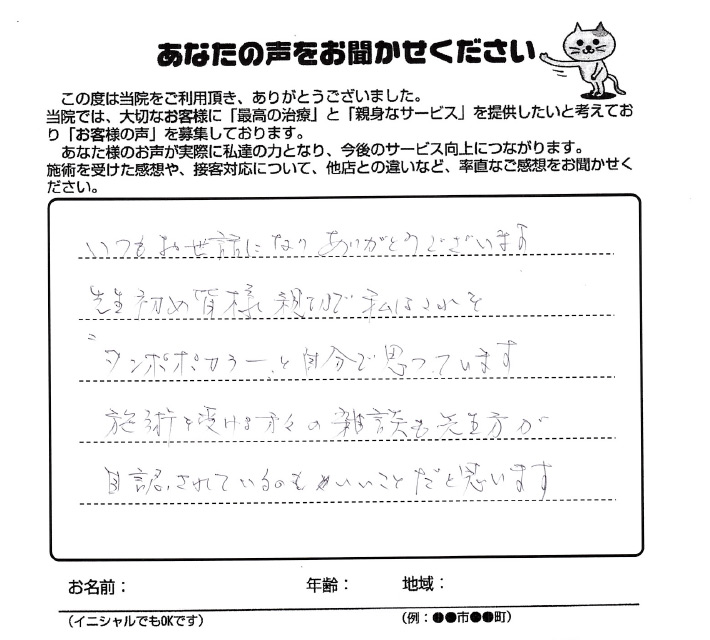 あなたの声をお聞かせください
この度は当院をご利用頂き、ありがとうございました。
当院では、大切なお客様に「最高の治療」と「親身なサービス」を提供したいと考えてお
り「お客様の声」を募集しております。
あなた様のお声が実際に私達の力となり、今後のサービス向上につながります。
施術を受けた感想や、接客対応について、他店との違いなど、率直なご感想をお聞かせく
ださい。
いつもお世話になりありがとうございます
先生初め皆様親切で私はそれを
"タンポポカラー"と自分で思っています
施術を受ける方々の雑談も先生方が
されているのもいいことだと思います
お名前：
年齢：
地域：
（イニシャルでもOKです）
（例：●●市●●町）